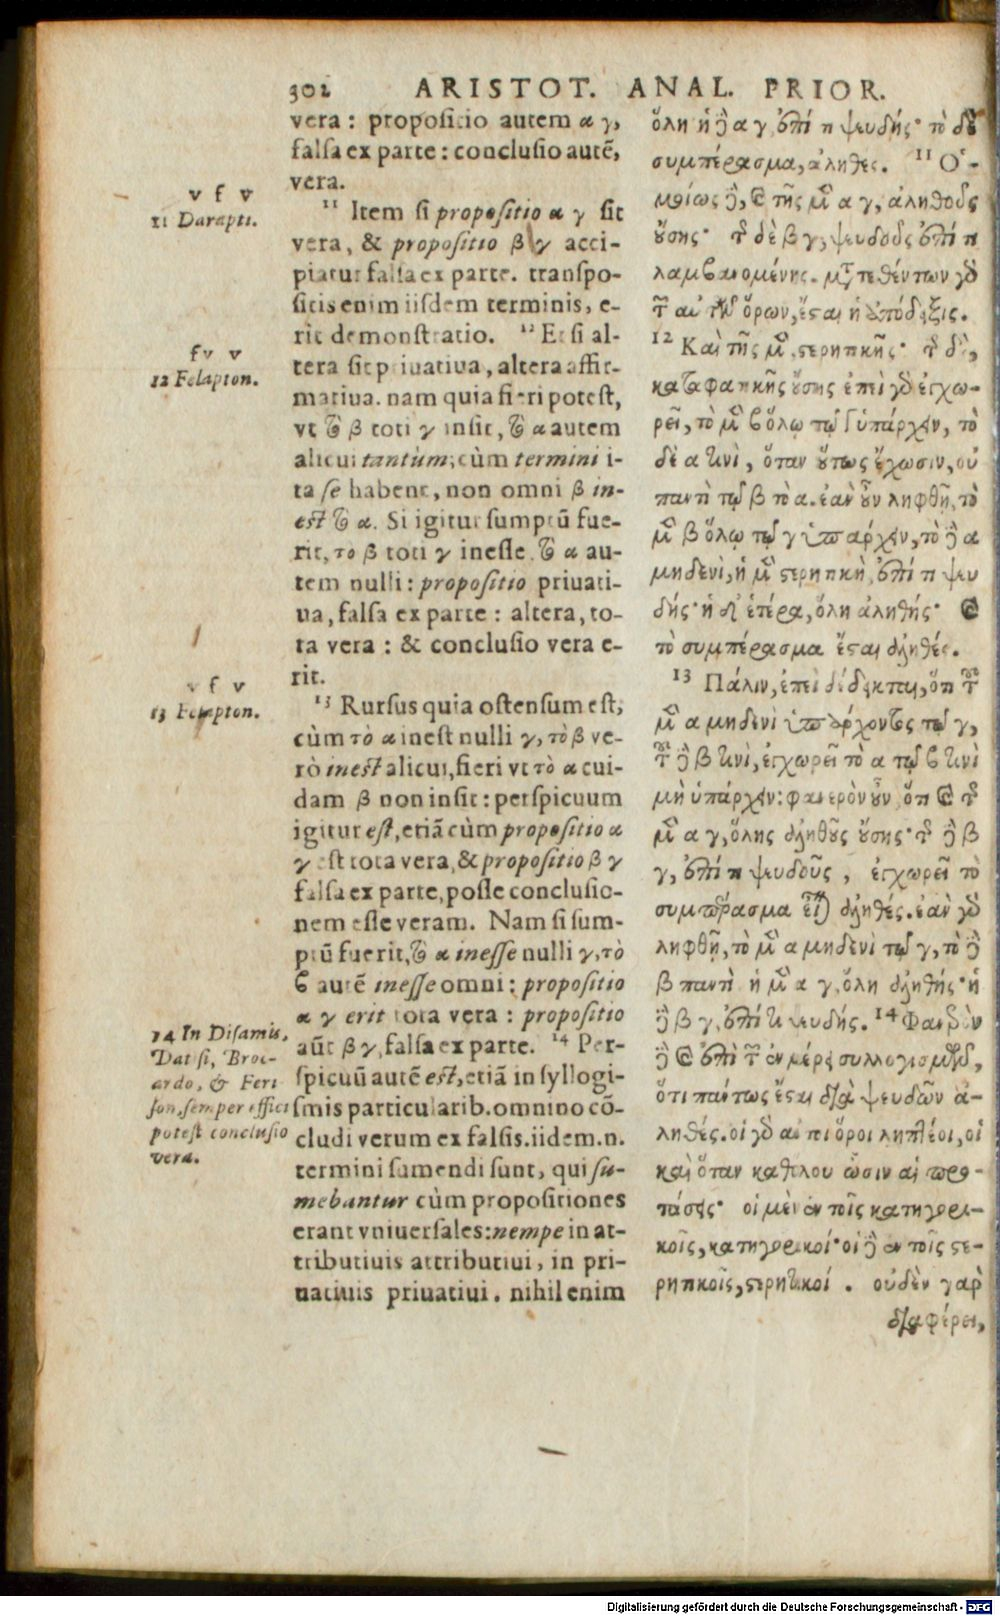 302 ARISTOT. ANAL. PRIOR.
vera: propositio autem α γ,
falsa ex parte: conclusio autē,
vera.
11 Item si propositio α γ sit
vera, & propositio β γ acci-
piatur falsa ex parte. transpo-
sitis enim iisdem terminis, e-
rit demonstratio. 12 Et si al-
tera sit priuatiua, altera affir-
matiua. nam quia fieri potest,
vt τὸ β toti γ insit, τὸ α autem
alicui tantùm; cùm termini i-
ta se habent, non omni β in-
est τὸ α. Si igitur sumptū fue-
rit, το β toti γ inesse, τὸ α au-
tem nulli: propositio priuati-
ua, falsa ex parte: altera, to-
ta vera: & conclusio vera e-
rit.
13 Rursus quia ostensum est,
cùm τὸ α inest nulli γ, τὸ β ve-
rò inest alicui, fieri vt τὸ α cui-
dam β non insit: perspicuum
igitur est, etiā cùm propositio α
γ est tota vera, & propositio β γ
falsa ex parte, posse conclusio-
nem esse veram. Nam si sum-
ptū fuerit, τὸ α inesse nulli γ, τὸ
β autē inesse omni: propositio
α γ erit tota vera: propositio
aūt β γ, falsa ex parte. 14 Per-
spicuū autē est, etiā in syllogi-
smis particularib. omnino cō-
cludi verum ex falsis. iidem .n.
termini sumendi sunt, qui su-
mebantur cùm propositiones
erant vniuersales: nempe in at-
tributiuis attributiui, in pri-
uatiuis priuatiui. nihil enim
v f v
11 Darapti.
f v v
12 Felapton.
v f v
13 Felapton.
14 In Disamis,
Datisi, Broc-
ardo, & Feri
son, semper effici
potest conclusio
vera.
ὅλη ἡ δὲ α γ, ἐπί τι ψευδής· τὸ δὲ
συμπέρασμα, ἀληθές. 11 Ὁ-
μοίως δὲ, καὶ τῆς μὲν α γ, ἀληθοῦς
οὔσης· τῆς δὲ β γ, ψευδοῦς ἐπί τι
λαμβανομένης. μετατεθέντων γὰρ
τῶν αὐτῶν ὅρων, ἔσται ἡ ἀπόδειξις.
12 Καὶ τῆς μὲν στερητικῆς· τῆς δὲ,
καταφατικῆς οὔσης ἐπεὶ γὰρ ἐγχω-
ρεῖ, τὸ μὲν β ὅλῳ τῷ γ ὑπάρχειν, τὸ
δὲ α τινὶ, ὅταν οὕτως ἔχωσιν, οὐ
παντὶ τῷ β τὸ α. ἐὰν οὖν ληφθῇ, τὸ
μὲν β ὅλῳ τῷ γ ὑπάρχειν, τὸ δὲ α
μηδενὶ, ἡ μὲν στερητικὴ, ἐπί τι ψευ
δής· ἡ δ' ἑτέρα, ὅλη ἀληθής· καὶ
τὸ συμπέρασμα ἔσται ἀληθές.
13 Πάλιν, ἐπεὶ δέδεικται, ὅτι τοῦ
μὲν α μηδενὶ ὑπάρχοντος τῷ γ,
τοῦ δὲ β τινὶ, ἐγχωρεῖ τὸ α τῷ β τινὶ
μὴ ὑπάρχειν: φανερὸν οὖν, ὅτι καὶ τῆς
μὲν α γ, ὅλης ἀληθοῦς οὔσης· τῆς δὲ β
γ, ἐπί τι ψευδοῦς, ἐγχωρεῖ τὸ
συμπέρασμα εἶναι ἀληθές. ἐὰν γὰρ
ληφθῇ, τὸ μὲν α μηδενὶ τῷ γ, τὸ δὲ
β παντὶ ἡ μὲν α γ, ὅλη ἀληθής· ἡ
δὲ β γ, ἐπί τι ψευδής. 14 Φανερὸν
δὲ καὶ ἐπὶ τῶν ἐν μέρει συλλογισμῶν,
ὅτι πάντως ἔσται διὰ ψευδῶν ἀ-
ληθές. οἱ γὰρ αὐτοὶ ὅροι ληπτέοι, οἱ
καὶ ὅταν καθόλου ὦσιν αἱ προ-
τάσεις· οἱ μὲν ἐν τοῖς κατηγορι-
κοῖς, κατηγορικοί· οἱ δὲ ἐν τοῖς στε-
ρητικοῖς, στερητικοί. οὐδὲν γὰρ
διαφέρει,
Digitalisierung gefördert durch die Deutsche Forschungsgemeinschaft - DFG